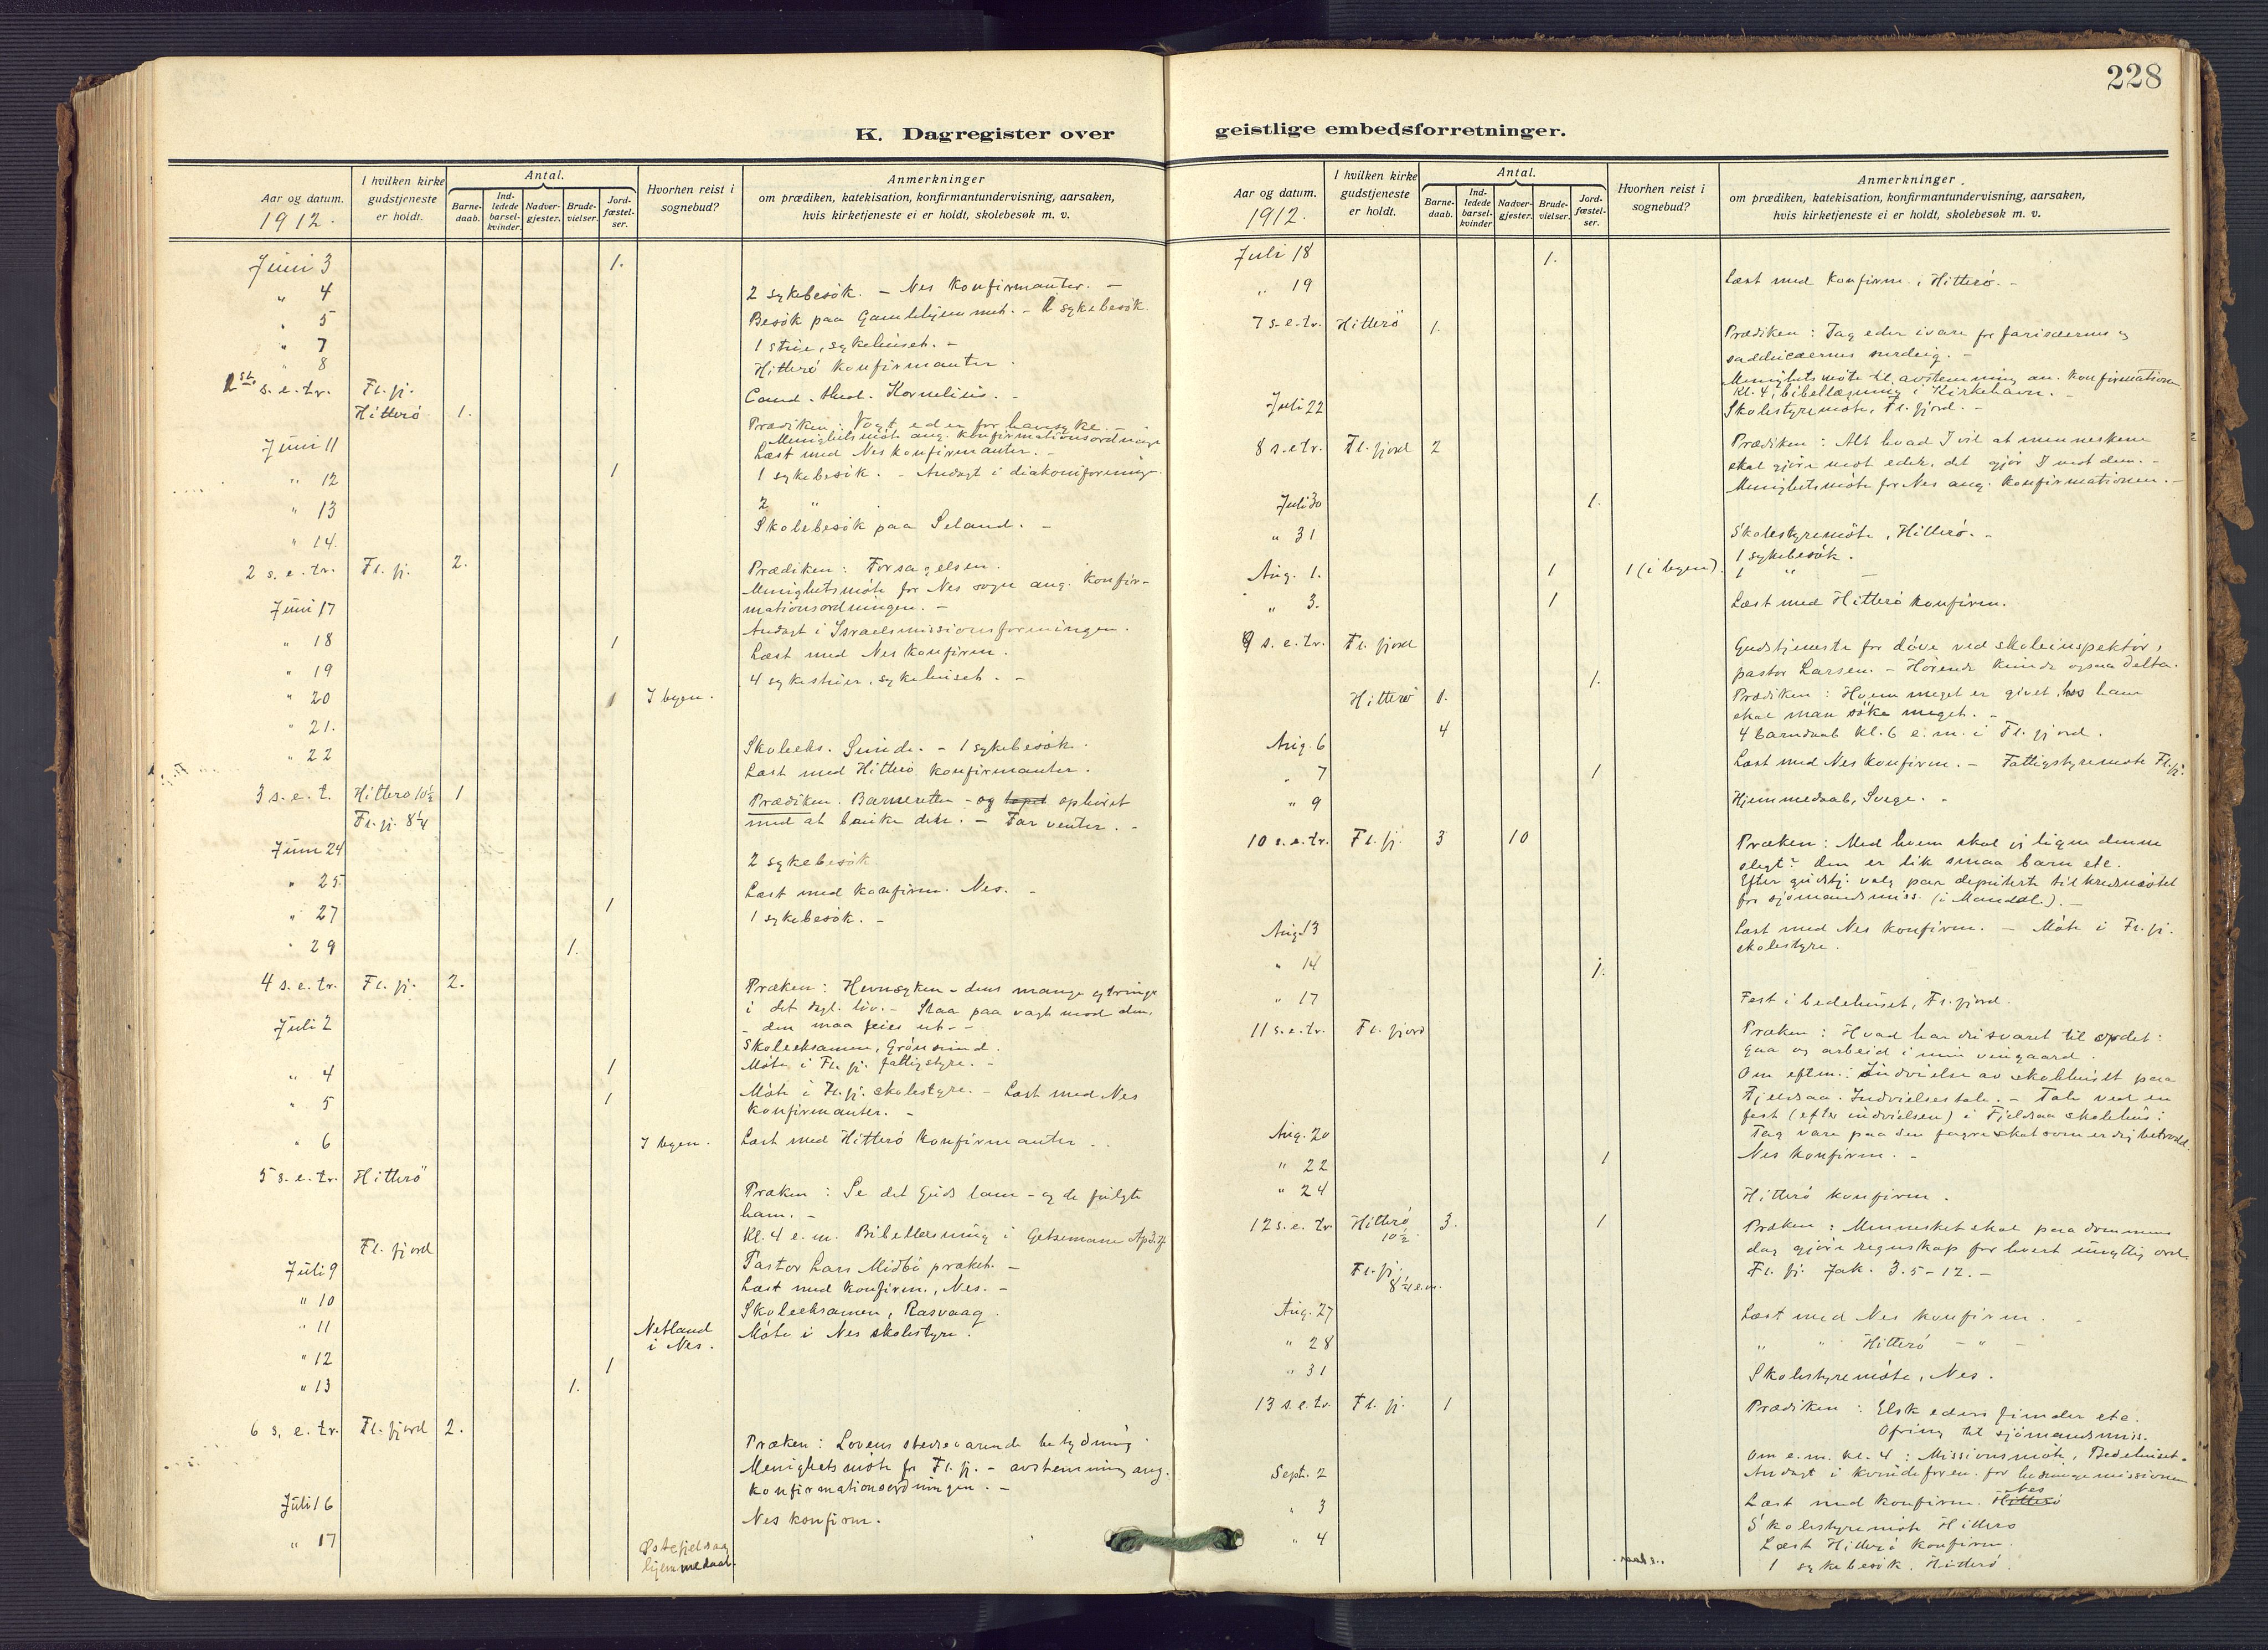 228
K. Dagregister over
geistlige embedsforretninger.
Aar og datum.
1912.
I hvilken kirke gudstjeneste er holdt.
Antal.
Barne-daab.
Ind-ledede barsel-kvinder.
Nadver-gjester.
Brude-vielser.
Jord-fæstel-ser.
Hvorhen reist i sognebud?
Anmerkninger
om prædiken, katekisation, konfirmantundervisning, aarsaken,
hvis kirketjeneste ei er holdt, skolebesøk m. v.
Juni 3 1.
" 4 2 sykebesök. – Nes konfirmanter. –
" 5 Besök paa Gamlehjemmet. – sykebesök.
" 7 1 stue, sykehuset. –
" 8 Hitterö konfirmanter.
1ste s. e. tr. Fl. fj. Cand. theol. Kornelius. –
Hitterö 1. Prædiken: Vogt eder for havesyke. –
Menighetsmöte ang. konfirmationsordninge
Juni 11 Læst med Nes konfirmanter. –
" 12 1 1 sykebesök. – Andagt i diakoniforeninge.
" 13 2 "
" 14. Skolebesök paa Seland. –
2 s. e. tr. Fl. fj. 2. Prædiken: Forsagelsen.
Menighetsmöte for Nes sogn ang. konfir-
mationsordningen. –
Juni 17 Andagt i Israelsmissionsforeningen.
" 18 1 Læst med Nes konfirm.
" 19 4 sykestuer, sykehuset. –
" 20 1 I byen.
" 21.
" 22 Skoleeks. Sunde. – 1 sykebesök.
Læst med Hitterö konfirmanter.
3 s. e. t. Hitterö 10½ 1 Prædiken. Barneretten – og ophöret
Fl. fj. 8¼ med at bruke den. – Far venter. –
Juni 24 2 sykebesök
" 25. Læst med konfirm. Nes. –
" 27 1 1 sykebesök. –
" 29 1.
4 s. e. tr. Fl. fj. 2. Præken: Hevnsyken – dens mange ytringe
i det dagl. liv. – Staa paa vagt mod den,
– den maa feies ut –
Juli 2 Skoleeksamen, Grönsund.
" 4 1 Möte i Fl. fj. fattigstyre. –
" 5 1 Möte i Fl. fj. skolestyre. – Læst med Nes
konfirmanter. –
" 6 I byen. Læst med Hitterö konfirmanter –
5 s. e. tr. Hitterö Præken: Se det Guds lam – og de fulgte
ham. –
Kl. 4 e. m. Bibellæsning i Getsemane
Fl. fjord Pastor Lars Midbö præket. –
Juli 9 Læst med konfirm., Nes. –
" 10 Skoleeksamen, Rasvaag.
" 11 Netland i Nes. Möte i Nes skolestyre.
" 12 1
" 13 1.
6 s. e. tr. Fl. fjord 2. Præken: Lovens stedsevarende betydning.
Menighetsmöte for Fl. fj. – avstemning ang.
konfirmationsordningen. –
Juli 16 Nes konfirm.
" 17 hjemmedaab.
Aar og datum.
1912.
I hvilken kirke gudstjeneste er holdt.
Antal.
Barne-daab.
Ind-ledede barsel-kvinder
Nadver-gjester.
Brude-vielser.
Jord-fæstel-ser.
Hvorhen reist i sognebud?
Anmerkninger
om prædiken, katekisation, konfirmantundervisning, aarsaken,
hvis kirketjeneste ei er holdt, skolebesøk m. v.
Juli 18 1.
" 19 Læst med konfirm. i Hitterö. –
7 s. e. tr. Hitterö 1. Prædiken: Tag eder ivare for farisæernes og
sadducæernes surdeig. –
Menighetsmöte til avstemning an. konfirmation
Kl. 4, bibellæsning i Kirkehavn. –
Juli 22 Skolestyremöte, Fl. fjord. –
8 s. e. tr. Fl. fjord 2 Prædiken: Alt hvad I vil at menneskene
skal gjöre mot eder, det gjör I mot dem. –
Menighetsmöte for Nes ang. konfirmationen. –
Juli 30 1.
" 31 Skolestyremöte, Hitterö. –
1 sykebesök.
Aug. 1. 1 1 (i byen). 1 " –
" 3. 1 Læst med Hitterö konfirm.
9 s. e. tr. Fl. fjord Gudstjeneste for döve ved skoleinspektör,
pastor Larsen. – Hörende kunde ogsaa delta.
1.
Hitterö 1. Prædiken: Hvem meget er givet, hos ham
skal man söke meget. –
4 4 barnedaab kl. 6 e. m. i Fl. fjord.
Aug. 6 Læst med Nes konfirm. – Fattigstyremöte Fl. fj.
" 7 1
" 9 Hjemmedaab, Svege. –
10 s. e. tr. Fl. fj. 3 10 Præken: Med hvem skal jeg ligne denne
slegt? den er lik smaa barn etc.
Efter gudstj. valg paa deputerte til kredsmötet
for sjömandsmiss. (i Mandal). –
Aug. 13 Læst med Nes konfirm. – Möte i Fl. fj.
skolestyre.
" 14 1.
" 17 Fest i bedehuset, Fl. fjord.
11 s. e. tr. Fl. fjord Præken: Hvad har du svaret til ordet:
Gaa og arbeid i min vingaard.
Om eftm.: Indvielse av skolehuset paa
Fjeldsaa. Indvielsestale. – Tale ved en
fest (efter indvielsen) i Fjeldsaa skolehus:
Tag vare paa den fagre skat som er dig betrodd.
Aug. 20 Nes konfirm. –
" 22 1
" 24 Hitterö konfirm.
12 s. e. tr Hitterö 10½ 3. 1 Præken: Mennesket skal paa dommens
dag gjöre regnskap for hvert unyttig ord.
Fl. fj. 8¼ e.m. Fl. fj. Jak. 3. 5–12. –
Aug. 27 Læst med Nes konfirm.
" 28 " " Hitterö – " –
" 31 Skolestyremöte, Nes.
13 s. e. tr. Fl. fj. 1 Prædiken: Elsk eders fiender etc.
Ofring til sjömandsmiss.
Om e. m. kl. 4: Missionsmöte, Bedehuset.
Sept. 2 Andagt i kvindeforen. for hedningemissionen
" 3 Læst med konfirm. Hitterö Nes
" 4 Skolestyremöte Hitterö
Læst Hitterö konfirm.
1 sykebesök. Hitterö.